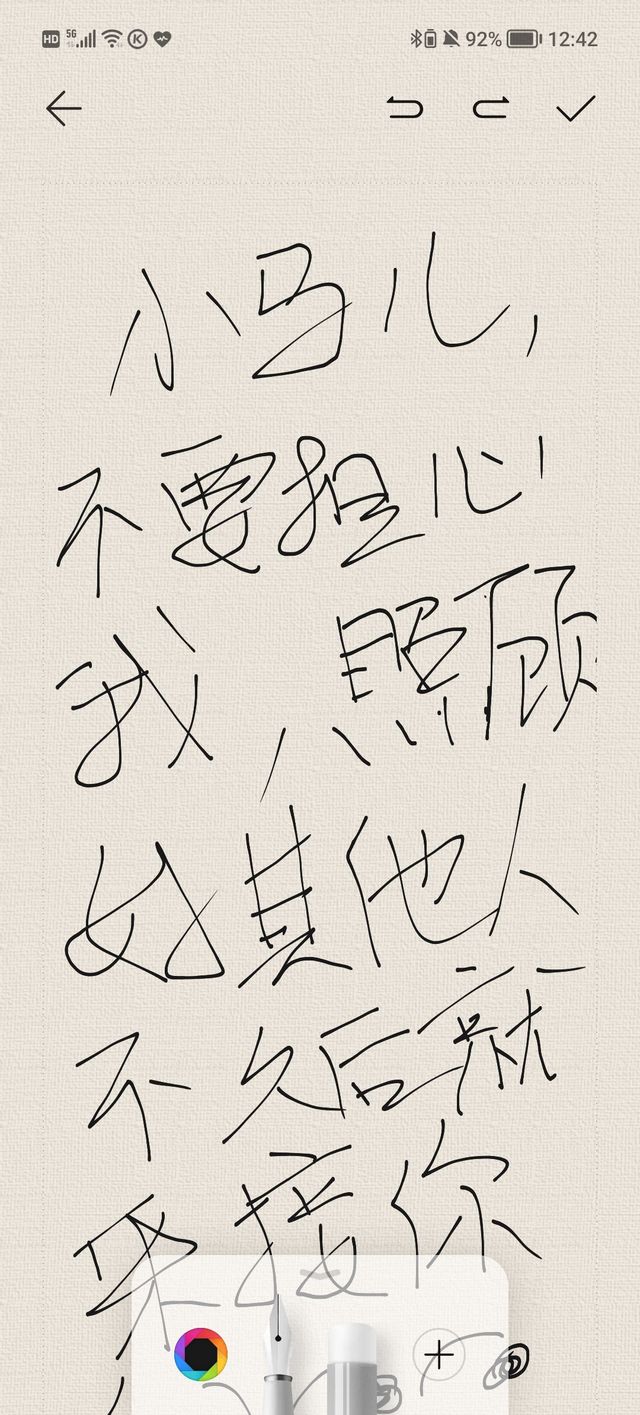 HD 5G 92% 12:42
小马儿，
不要担心
我，照顾
好其他人
不久后就
来接你